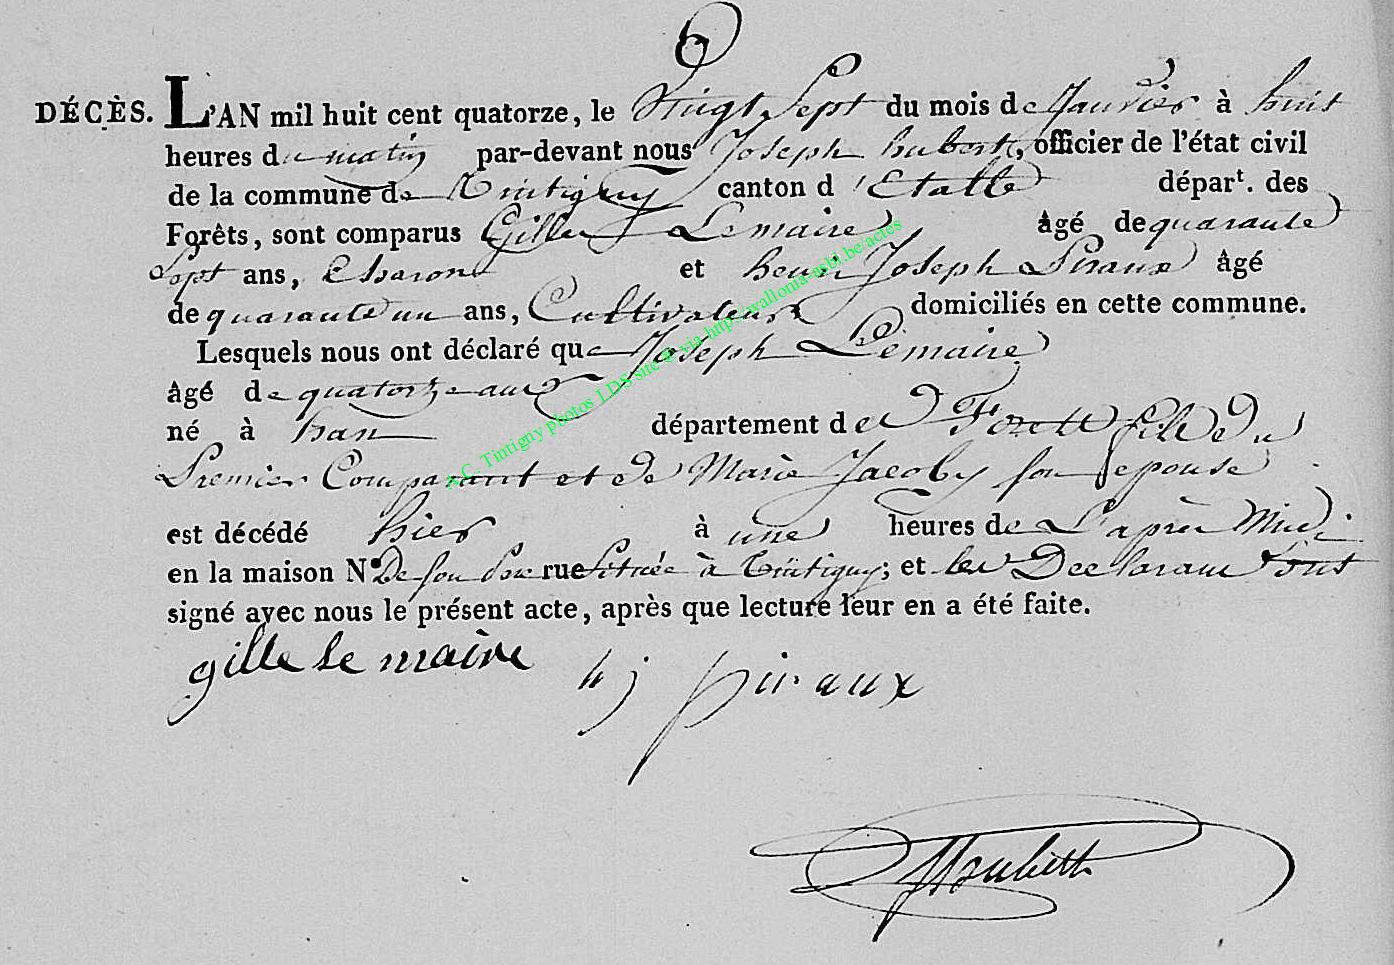 6
DÉCÈS. L'AN mil huit cent quatorze, le Vingt Sept du mois de Janvier à huit
heures du matin par-devant nous Joseph hubert, officier de l'état civil
de la commune de Tintigny canton d'Etalle départ. des
Forêts, sont comparus Gille Lemaire âgé de quarante
Sept ans, Charon et henri Joseph Piraux âgé
de quarante un ans, Cultivateur domiciliés en cette commune.
Lesquels nous ont déclaré que Joseph Lemaire
âgé de quatorze ans
né à han département des Forêts fils du
Premier Comparant et de Marie Jacoby son epouse
est décédé hier à une heures de L'après Midi
en la maison N° De son Père rue Située à Tintigny; et les Declarans ont
signé avec nous le présent acte, après que lecture leur en a été faite.
gille le maire h j piraux
A.C. Tintigny photos LDS site © via http://wallonia-asbl.be/actes